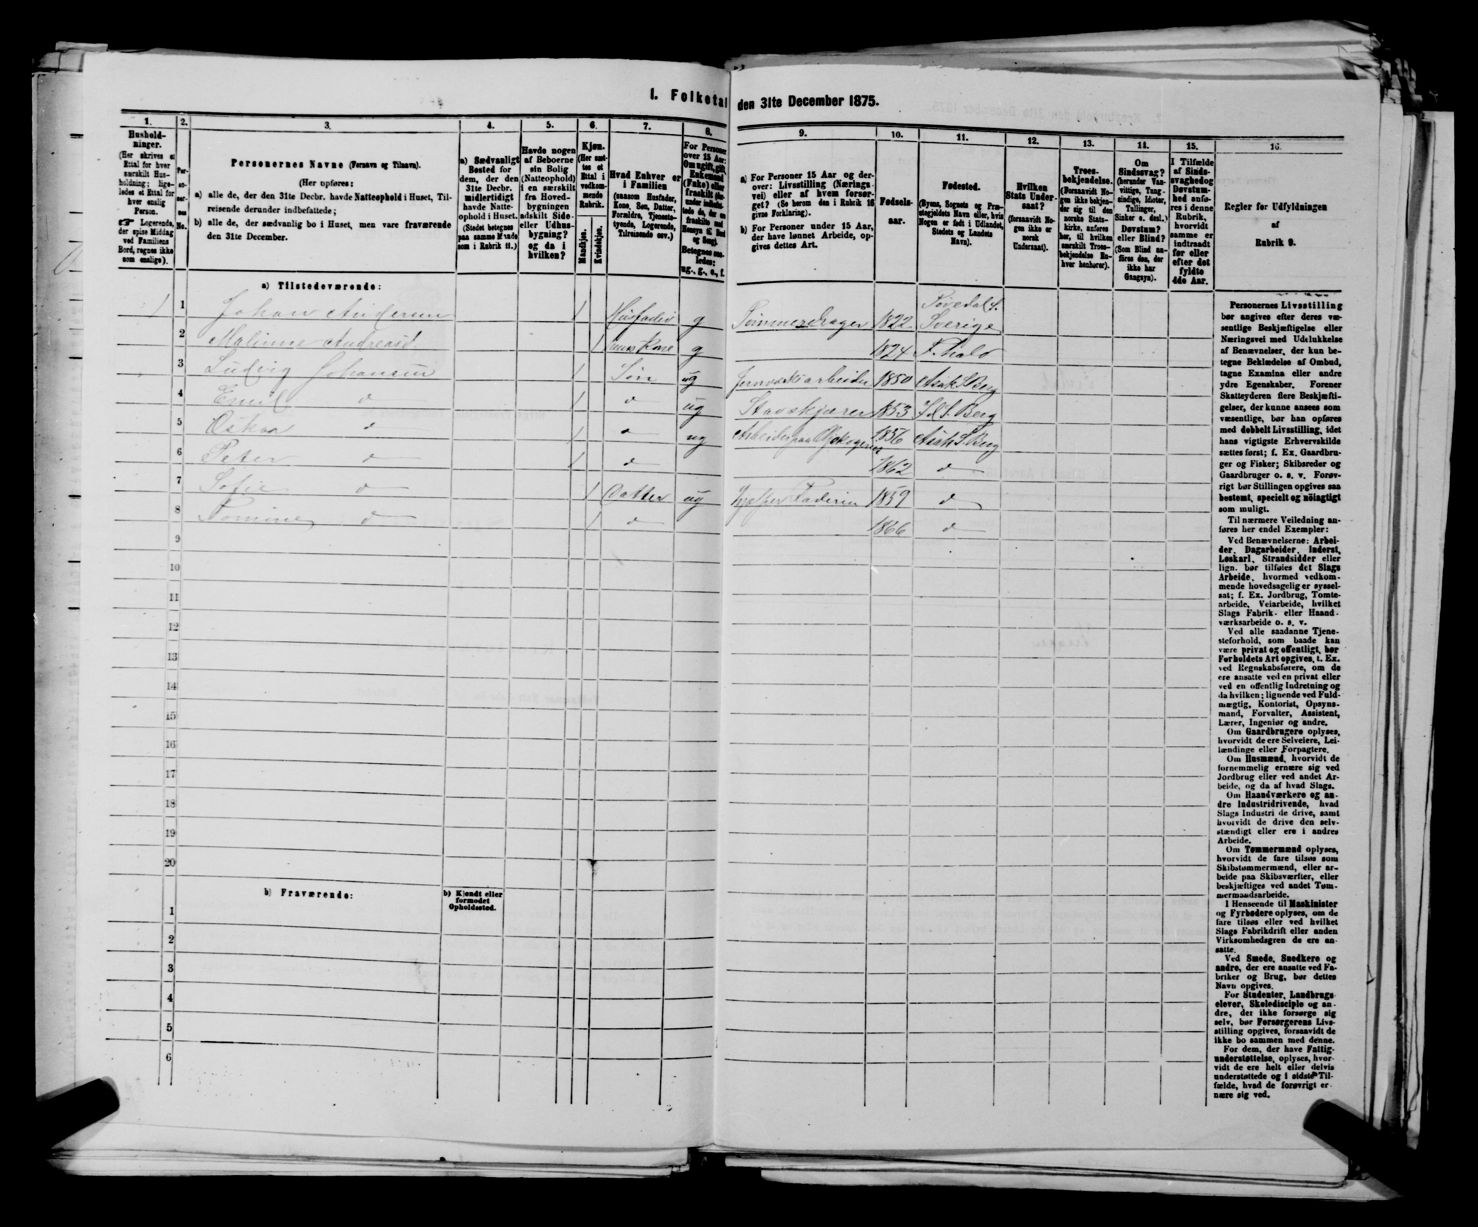 I. Folketal den 31te December 1875.
1.
Hushold-
ninger.
(Her skrives et
Ettal for hver
særskilt Hus-
holdning; lige-
ledes et Ettal for
hver enslig
Person.
☞ Logerende,
der spise Middag
ved Familiens
Bord, regnes ikke
som enslige).
2.
3.
Personernes Navne (Fornavn og Tilnavn).
(Her opføres:
a) alle de, der den 31te Decbr. havde Natteophold i Huset, Til-
reisende derunder indbefattede;
b) alle de, der sædvanlig bo i Huset, men vare fraværende
den 31te December.
4.
a) Sædvanligt
Bosted for
dem, der den
31te Decbr.
midlertidigt
havde Natte-
ophold i Huset.
(Stedet betegnes
paa samme Maade
som i Rubrik 11.)
5.
Havde nogen
af Beboerne
sin Bolig
(Natteophold)
i en særskilt
fra Hoved-
bygningen
adskilt Side-
eller Udhus-
bygning?
og da i
hvilken?
6.
Kjøn.
(Her sæt-
tes et
Ettal i
vedkom-
mende
Rubrik.
Mandkjøn.
Kvindekjøn.
7.
Hvad Enhver er
i Familien
(saasom Husfader,
Kone, Søn, Datter,
Forældre, Tjeneste-
tyende, Logerende,
Tilreisende osv.)
8.
For Personer
over 15 Aar:
Om ugift, gift,
Enkemand
(Enke) eller
fraskilt
Betegnes saa-
ledes:
ug., g., e., f.
9.
a) For Personer 15 Aar og der-
over: Livsstilling (Nærings-
vei) eller af hvem forsør-
get? (Se herom den i Rubrik 16
givne Forklaring).
b) For Personer under 15 Aar,
der have lønnet Arbeide, op-
gives dettes Art.
10.
Fødsels-
aar.
11.
Fødested.
(Byens, Sognets og Præ-
stegjeldets Navn eller, hvis
Nogen er født i Udlandet,
Stedets og Landets
Navn).
12.
Hvilken
Stats Under-
saat?
(forsaavidt No-
gen ikke er
norsk
Undersaat).
13.
Troes-
bekjendelse.
(Forsaavidt No-
gen ikke bekjen-
der sig til den
norske Stats-
kirke, anføres
her, til hvilken
særskilt Troes-
bekjendelse En-
hver henhører).
14.
Om
Sindssvag?
(herunder Van-
vittige, Tung-
sindige, Idioter,
Tullinger,
Sinker o. desl.)
Døvstum?
eller Blind?
(Som Blind an-
føres den, der
ikke har
Gangsyn).
15.
I Tilfælde
af Sinds-
svaghed og
Døvstum-
hed anfø-
res i denne
Rubrik,
hvorvidt
samme er
indtraadt
før eller
efter det
fyldte
4de Aar.
16.
Regler for Udfyldningen
af
Rubrik 9.
a) Tilstedeværende:
1 1 Johan Andersen 1 Husfader g Tømmerdrager 1822 Sverige
2 Maline Andreasd 1 Kone g 1824
3 Ludvig Johansen 1 Søn ug 1850 Asak S Berg
4 Emil d 1 d ug Stavskjærer 1853 Berg
5 Oskar d 1 d ug 1856 Asak S Berg
6 Peter d 1 d 1862 d
7 Sofie d 1 Datter ug hjelper Faderen 1859 d
8 d 1 d 1866 d
9
10
11
12
13
14
15
16
17
18
19
20
b) Fraværende:
b) Kjendt eller
formodet
Opholdssted.
1
2
3
4
5
6
Personernes Livsstilling
bør angives efter deres væ-
sentlige Beskjæftigelse eller
Næringsvei med Udelukkelse
af Benævnelser, der kun be-
tegne Beklædelse af Ombud,
tagne Examina eller andre
ydre Egenskaber. Forener
Skatteyderen flere Beskjæfti-
gelser, der kunne ansees som
væsentlige, bør han opføres
med dobbelt Livsstilling, idet
hans vigtigste Erhvervskilde
sættes først; f. Ex. Gaardbru-
ger og Fisker; Skibsreder og
Gaardbruger o. s. v. Forøv-
rigt bør Stillingen opgives saa
bestemt, specielt og nöiagtigt
som muligt.
Til nærmere Veiledning an-
føres her endel Exempler:
Ved Benævnelserne: Arbei-
der, Dagarbeider, Inderst,
Løskarl, Strandsidder eller
lign. bør tilføies det Slags
Arbeide, hvormed vedkom-
mende hovedsagelig er syssel-
sat; f. Ex. Jordbrug, Tomte-
arbeide, Veiarbeide, hvilket
Slags Fabrik- eller Haand-
værksarbeide o. s. v.
Ved alle saadanne Tjene-
steforhold, som baade kan
være privat og offentligt, bør
Forholdets Art opgives, f. Ex.
ved Regnskabsførere, om de
ere ansatte ved en privat eller
ved en offentlig Indretning og
da hvilken; lignende ved Fuld-
mægtig, Kontorist, Opsyns-
mand, Forvalter, Assistent,
Lærer, Ingeniør og andre.
Om Gaardbrugere oplyses,
hvorvidt de ere Selveiere, Lei-
lændinge eller Forpagtere.
Om Husmænd, hvorvidt de
fornemmelig ernære sig ved
Jordbrug eller ved andet Ar-
beide, og da af hvad Slags.
Om Haandværkere og an-
dre Industridrivende, hvad
Slags Industri de drive, samt
hvorvidt de drive den selv-
stændigt eller ere i andres
Arbeide.
Om Tømmermænd oplyses,
hvorvidt de fare tilsøs som
Skibstømmermænd, eller ar-
beide paa Skibsværfter, eller
beskjæftiges ved andet Tøm-
mermandsarbeide.
I Henseende til Maskinister
og Fyrbødere oplyses, om de
fare tilsøs eller ved hvilket
Slags Fabrikdrift eller anden
Virksomhedsgren de ere an-
satte.
Ved Smede, Snedkere og
andre, der ere ansatte ved Fa-
briker og Brug, bør dettes
Navn opgives.
For Studenter, Landbrugs-
elever, Skoledisciple og an-
dre, der ikke forsørge sig
selv, bør Forsørgerens Livs-
stilling opgives, forsaavidt de
ikke bo sammen med denne.
For dem, der have Fattig-
understøttelse, oplyses, hvor-
vidt de ere helt eller delvis
understøttede og i sidste Til-
fælde, hvad de forøvrigt er-
nære sig ved.